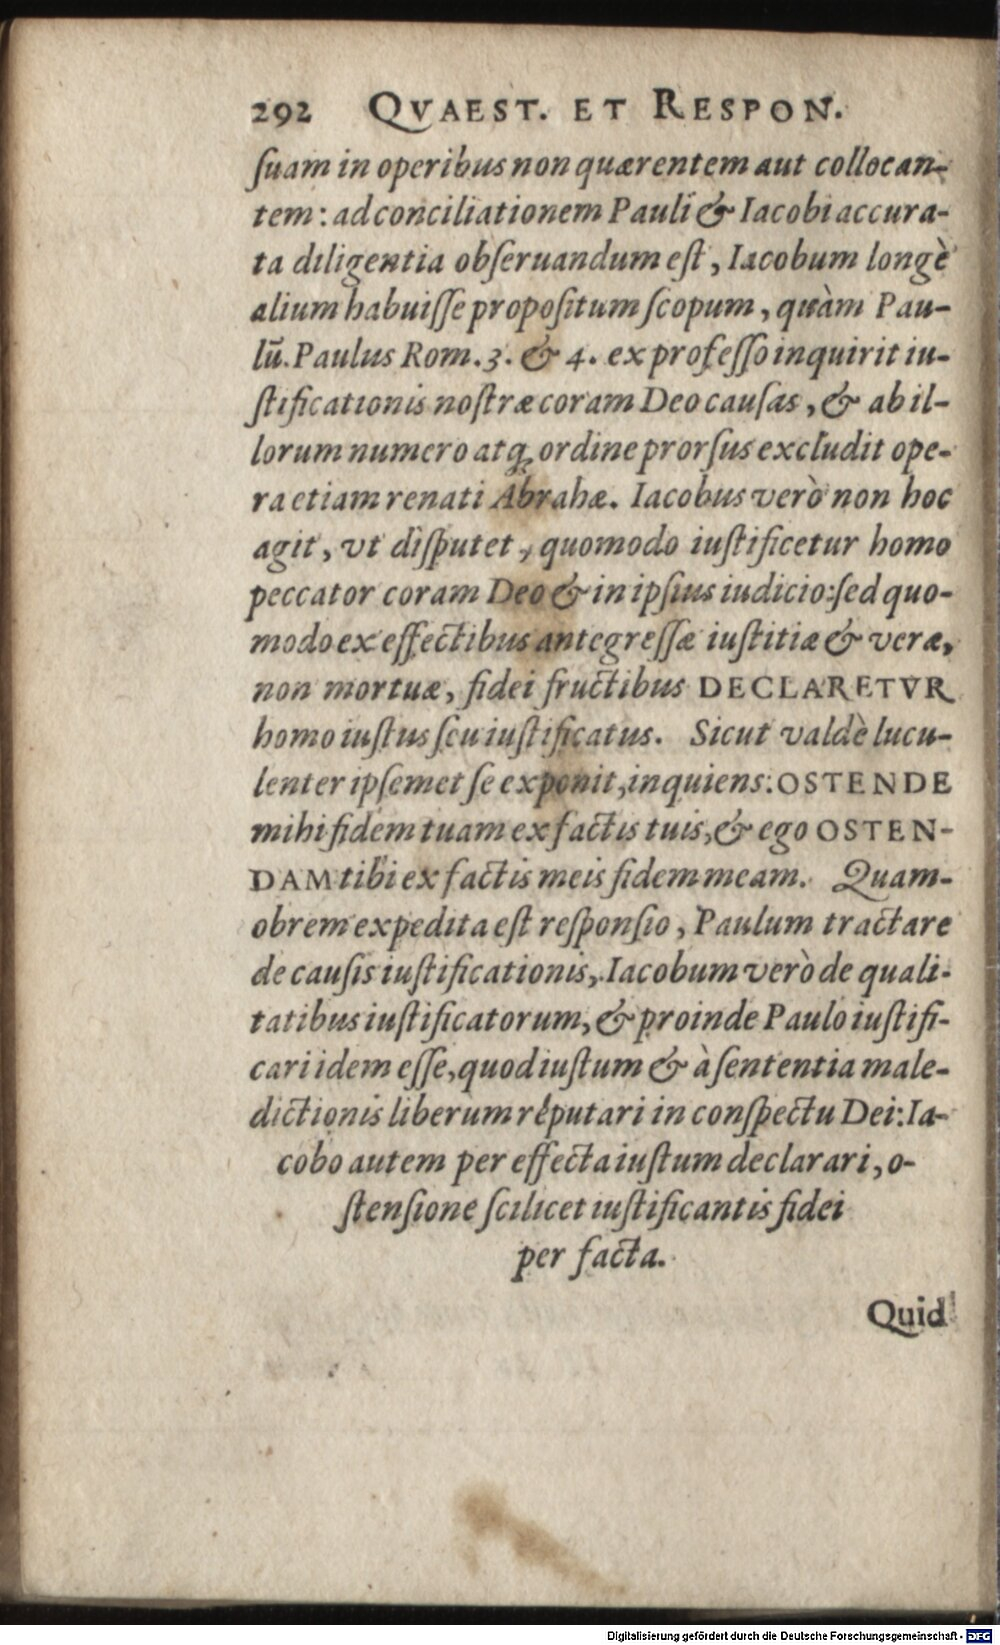 292 QVAEST. ET RESPON.
ſuam in operibus non quærentem aut collocan-
tem: ad conciliationem Pauli & Iacobi accura-
ta diligentia obſeruandum eſt, Iacobum longè
alium habuiſſe propoſitum ſcopum, quàm Pau-
lũ. Paulus Rom. 3. & 4. ex profeſſo inquirit iu-
ſtificationis noſtræ coram Deo cauſas, & ab il-
lorum numero atq; ordine prorſus excludit ope-
ra etiam renati Abrahæ. Iacobus verò non hoc
agit, vt diſputet, quomodo iuſtificetur homo
peccator coram Deo & in ipſius iudicio: ſed quo-
modo ex effectibus antegreſſæ iuſtitiæ & veræ,
non mortuæ, fidei fructibus DECLARETVR
homo iuſtus ſeu iuſtificatus. Sicut valdè lucu-
lenter ipſemet ſe exponit, inquiens: OSTENDE
mihi fidem tuam ex factis tuis, & ego OSTEN-
DAM tibi ex factis meis fidem meam. Quam-
obrem expedita eſt reſponſio, Paulum tractare
de cauſis iuſtificationis, Iacobum verò de quali-
tatibus iuſtificatorum, & proinde Paulo iuſtifi-
cari idem eſſe, quod iuſtum & à ſententia male-
dictionis liberum reputari in conſpectu Dei: Ia-
cobo autem per effecta iuſtum declarari, o-
ſtenſione ſcilicet iuſtificantis fidei
per facta.
Quid
Digitalisierung gefördert durch die Deutsche Forschungsgemeinschaft - DFG